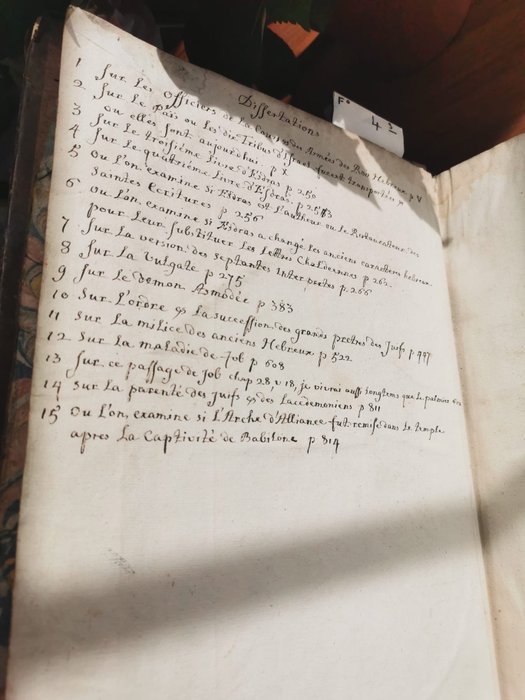 Dissertations
F° 4 2
1 Sur Les Officiers de La Cour et des Armées des Rois Hebreux p 8
2 Sur Le Païs ou les dix Tribus d'Israel furent transportées
ou elles sont aujourdhui. p X
3 Sur Le troisième Livre d'Esdras p 250
4 Sur Le quatrième Livre d'Esdras. p 253
5 Ou L'on examine si Esdras est L'autheur ou le Restaurateur des
Saintes Ecritures p 256
6 Ou L'on examine si Esdras a changé les anciens caracteres hebreux
pour Leur Substituer les Lettres Chaldeennes p 262
7 Sur La version des septantes Interpretes p. 266
8 Sur La Vulgate p 275
9 Sur Le Demon Asmodée p 383
10 Sur L'ordre & La succession des grands pretres des Juifs p 497
11 Sur La milice des anciens Hebreux p 522
12 Sur La maladie de Job p 608
13 Sur ce passage de Job chap 28, v 18, je vivrai aussi longtems que le palmier
14 Sur La parenté des Juifs & des Lacedemoniens p 811
15 Ou L'on examine si L'Arche d'Alliance fut remise dans Le temple
apres La Captivité de Babilone p 814